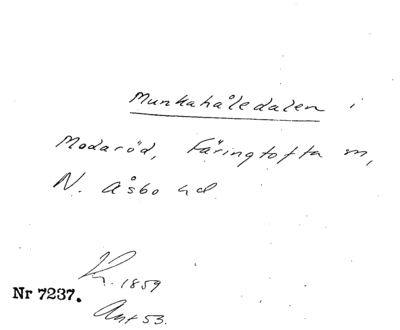 Munkahåledalen i
Modaröd, Färingtofta m,
N. Åsbo hd
K. 1859
Ant 53.
Nr 7237.